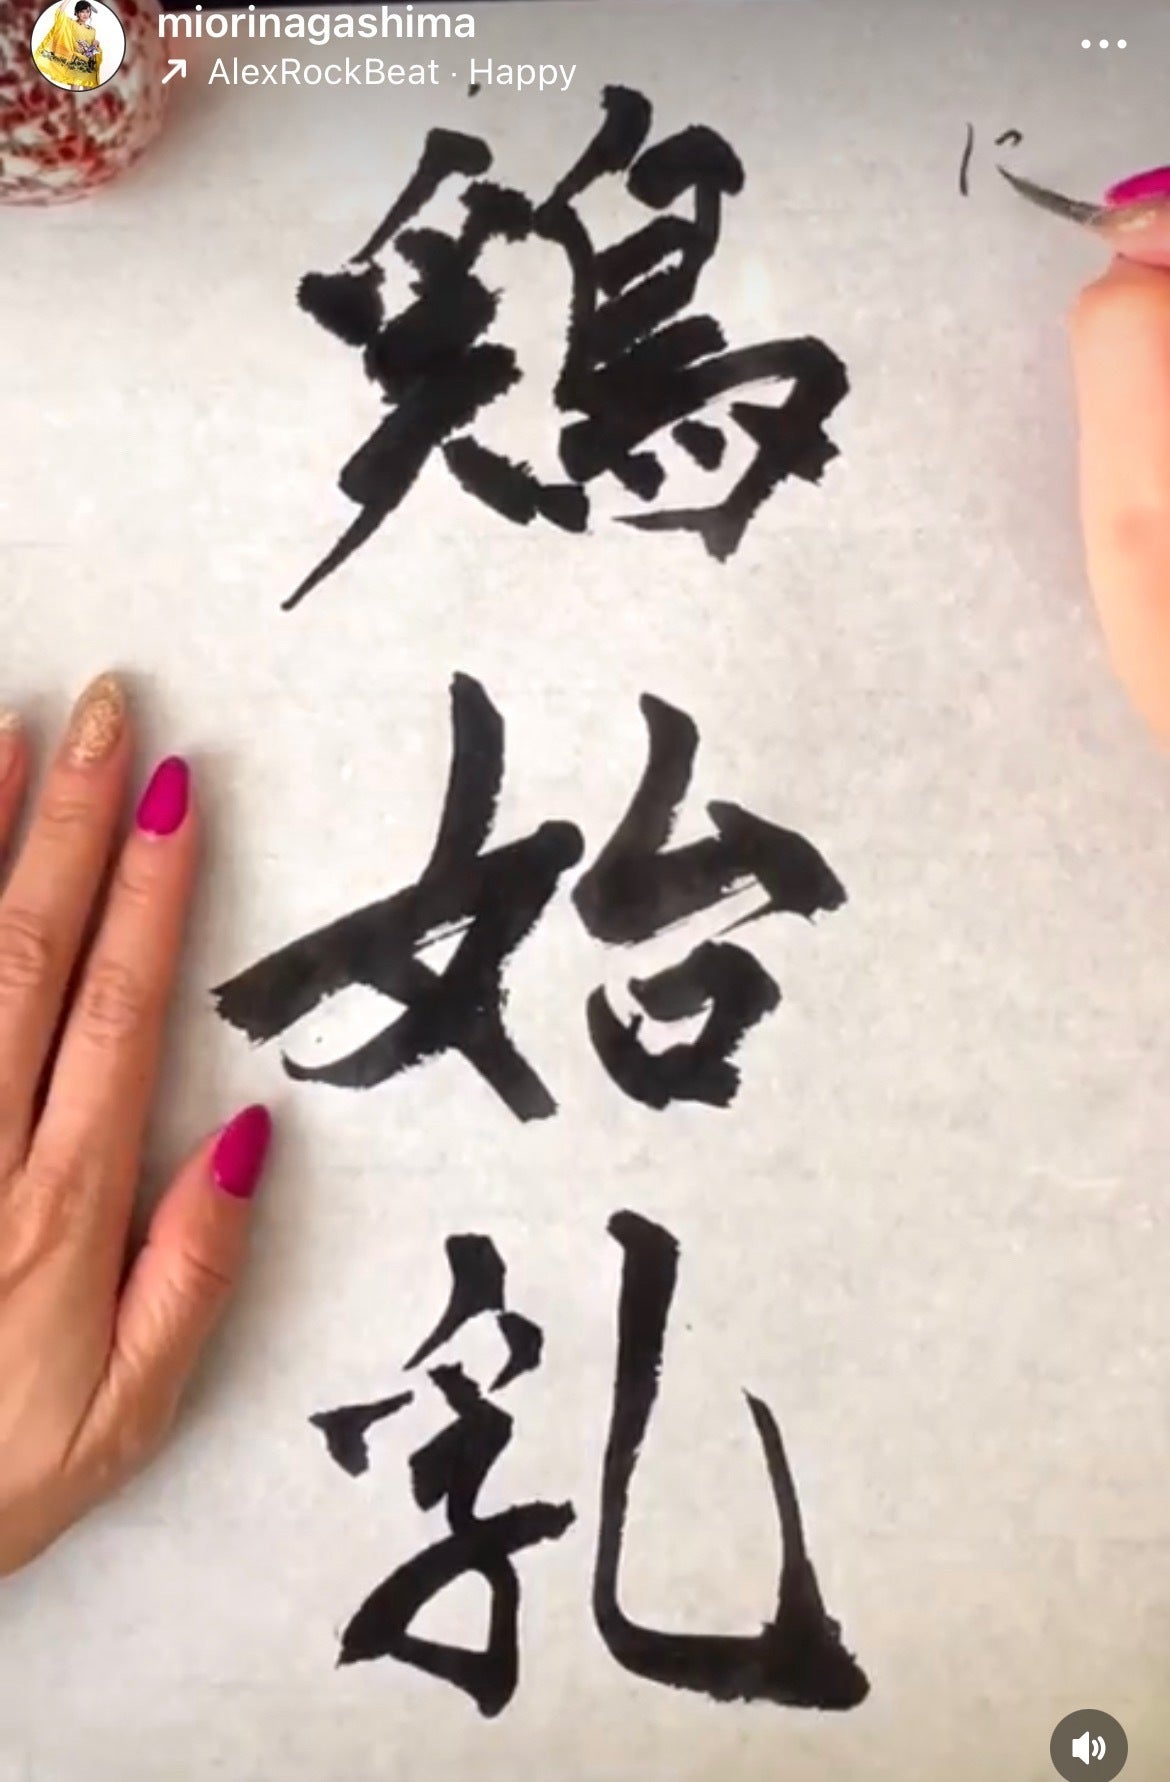 miorinagashima
AlexRockBeat · Happy
鶏始乳
に